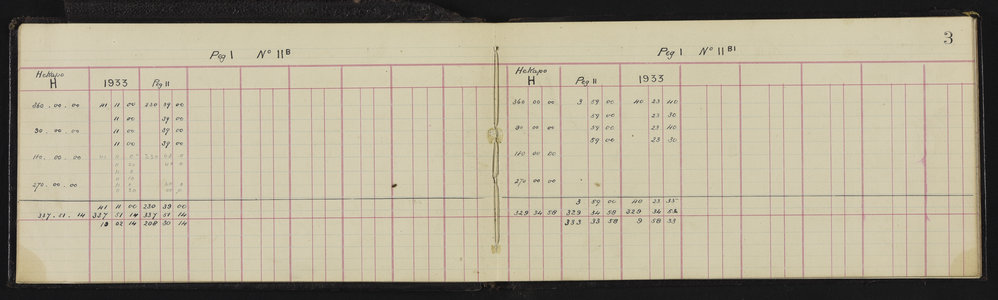 3
Peg I No IIB
Hekapo
H 1933 Peg II
360 . 00 . 00 41 11 00 230 39 00
11 00 39 00
90 . 00 . 00 11 00 39 00
11 00 39 00
180 . 00 . 00
270 . 00 . 00
41 11 00 230 39 00
337 . 51 . 14 337 51 14 337 51 14
19 02 14 208 30 14
Peg I No IIBI
Hekapo
H Peg II 1933
360 00 00 3 59 00 40 23 40
59 00 23 30
90 00 00 59 00 23 40
59 00 23 30
180 00 00
270 00 00
3 59 00 40 23 35
329 34 58 329 34 58 329 34 58
333 33 58 9 58 33